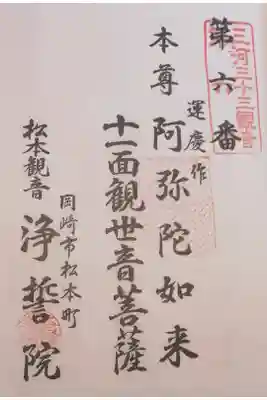 第六番
三河三十三観音
本尊
運慶作
阿弥陀如来
十一面観世音菩薩
岡崎市松本町
松本観音
浄誓院